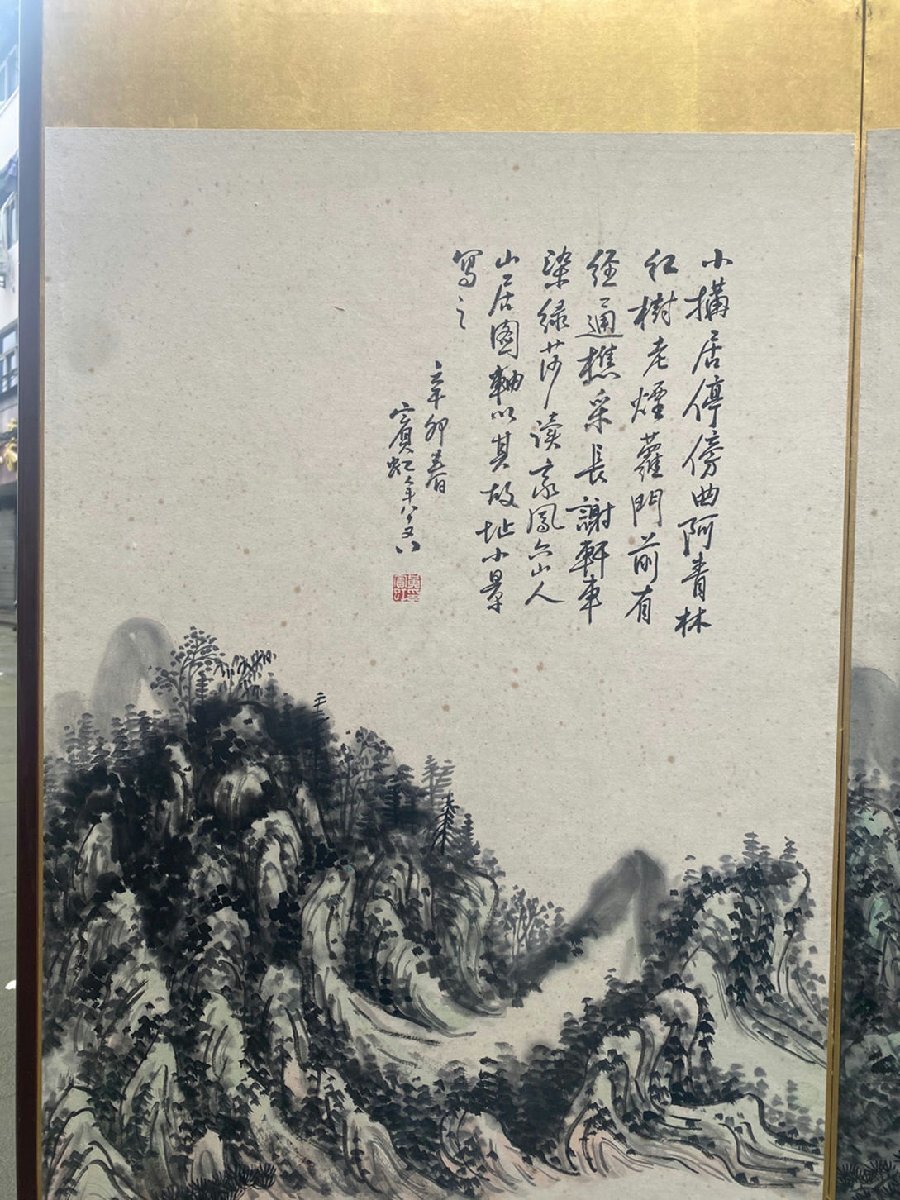 小搆居停傍曲阿青林
紅樹老煙蘿門前有
徑通樵采長謝軒車
染綠莎讀家鳳六山人
山居圖軸以其故址小景
寫之
辛卯春
賓虹年八十又八